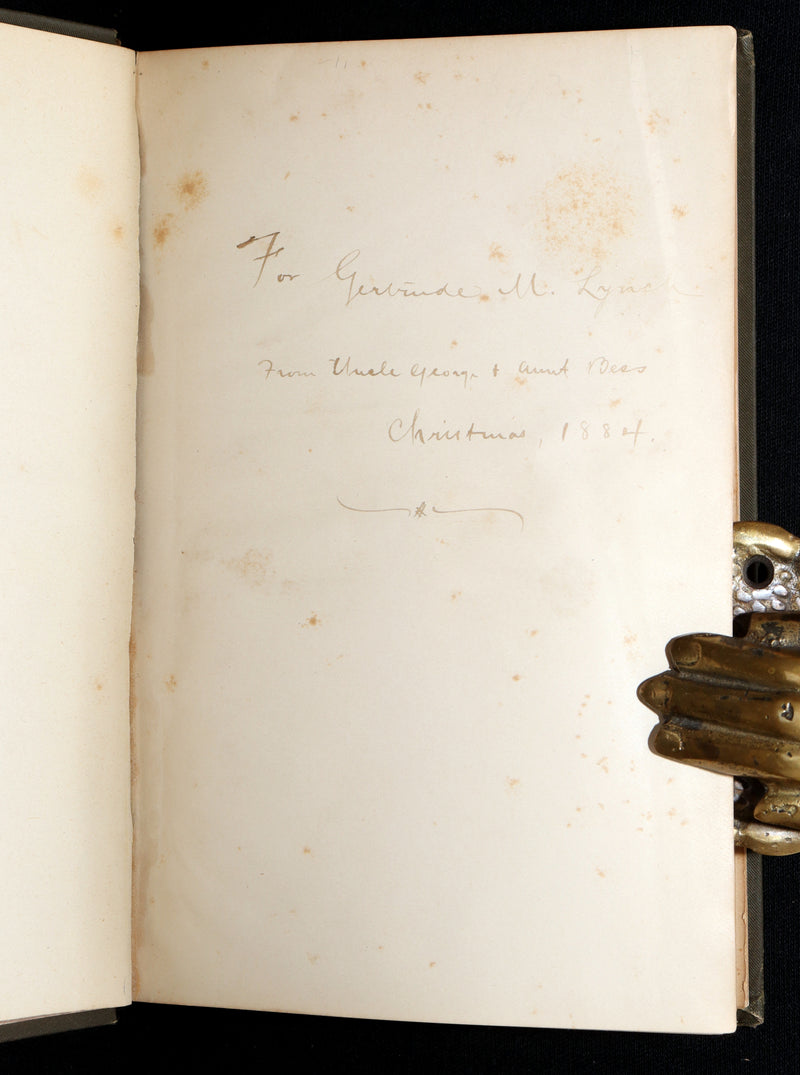 For Gertrude M. Lynch
From Uncle George & Aunt Bess
Christmas, 1884.